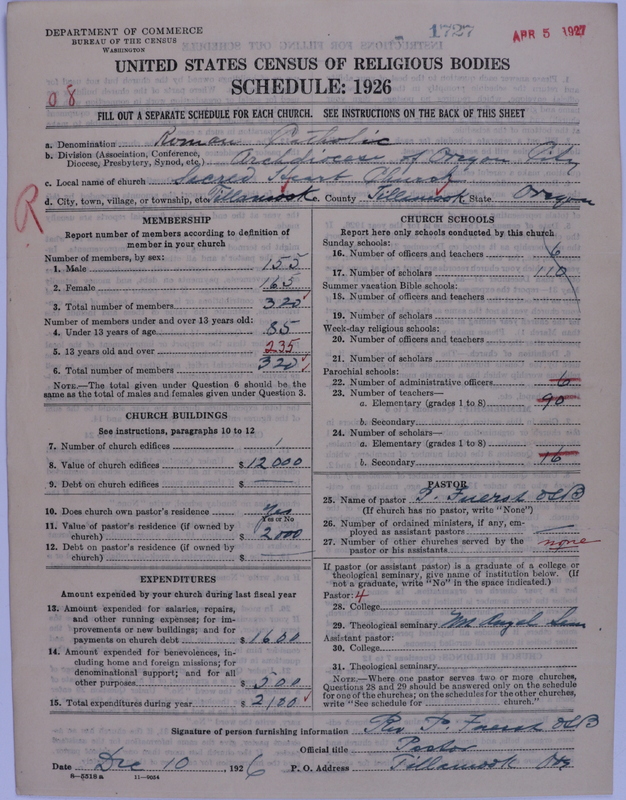 DEPARTMENT OF COMMERCE
BUREAU OF THE CENSUS
WASHINGTON
1727
APR 5 1927
UNITED STATES CENSUS OF RELIGIOUS BODIES
SCHEDULE: 1926
08
FILL OUT A SEPARATE SCHEDULE FOR EACH CHURCH. SEE INSTRUCTIONS ON THE BACK OF THIS SHEET
a. Denomination Roman Catholic
b. Division (Association, Conference, Diocese, Presbytery, Synod, etc.) Archdiocese of Oregon City
c. Local name of church Sacred Heart Church
d. City, town, village, or township, etc. Tillamook e. County Tillamook State Oregon
R
MEMBERSHIP
Report number of members according to definition of member in your church
Number of members, by sex:
1. Male 155
2. Female 165
3. Total number of members 320
Number of members under and over 13 years old:
4. Under 13 years of age 85
5. 13 years old and over 235
6. Total number of members 320
NOTE.—The total given under Question 6 should be the same as the total of males and females given under Question 3.
CHURCH BUILDINGS
See instructions, paragraphs 10 to 12
7. Number of church edifices 1
8. Value of church edifices $ 12000
9. Debt on church edifices $
10. Does church own pastor's residence Yes
Yes or No
11. Value of pastor's residence (if owned by church) $ 2000
12. Debt on pastor's residence (if owned by church) $
EXPENDITURES
Amount expended by your church during last fiscal year
13. Amount expended for salaries, repairs, and other running expenses; for improvements or new buildings; and for payments on church debt $ 1600
14. Amount expended for benevolences, including home and foreign missions; for denominational support; and for all other purposes $ 500
15. Total expenditures during year $ 2100
CHURCH SCHOOLS
Report here only schools conducted by this church
Sunday schools:
16. Number of officers and teachers 6
17. Number of scholars 110
Summer vacation Bible schools:
18. Number of officers and teachers
19. Number of scholars
Week-day religious schools:
20. Number of officers and teachers
21. Number of scholars
Parochial schools:
22. Number of administrative officers 6
23. Number of teachers—
a. Elementary (grades 1 to 8) 90
b. Secondary
24. Number of scholars—
a. Elementary (grades 1 to 8)
b. Secondary 16
PASTOR
25. Name of pastor P. Fuerst OSB
(If church has no pastor, write "None")
26. Number of ordained ministers, if any, employed as assistant pastors
27. Number of other churches served by the pastor or his assistants none
If pastor (or assistant pastor) is a graduate of a college or theological seminary, give name of institution below. (If not a graduate, write "No" in the space indicated.)
Pastor: 4
28. College
29. Theological seminary Mt Angel Sem
Assistant pastor:
30. College
31. Theological seminary
NOTE.—Where one pastor serves two or more churches, Questions 28 and 29 should be answered only on the schedule for one of the churches; on the schedules for the other churches, write "See schedule for church."
Signature of person furnishing information Rev P. Fuerst OSB
Official title Pastor
Date Dec 10, 1926 P. O. Address Tillamook Ore
8—5518 a 11—9034